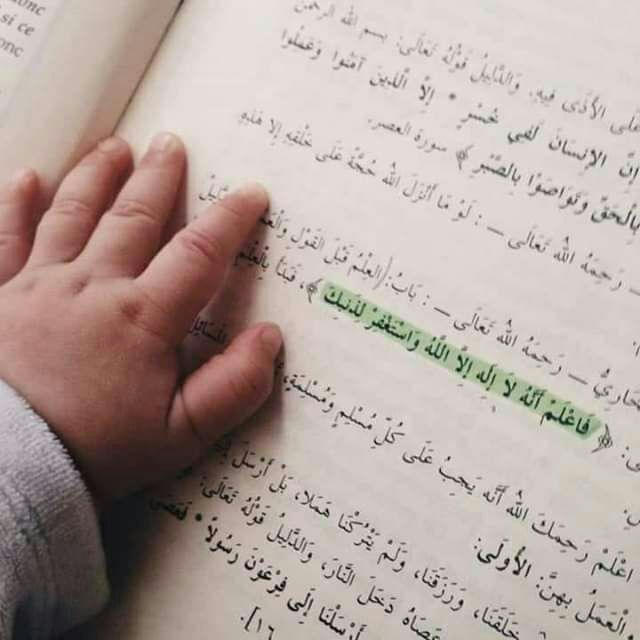 onc
si ce
onc
عَلَى الأَذَى فِيهِ. وَالدَّلِيلُ قَوْلُهُ تَعَالَى: بِسْمِ اللَّهِ الرَّحْمَنِ
إِنَّ الإِنسَانَ لَفِي خُسْرٍ * إِلَّا الَّذِينَ آمَنُوا وَعَمِلُوا
بِالْحَقِّ وَتَوَاصَوْا بِالصَّبْرِ ﴾ سورة العصر.
— رَحِمَهُ اللَّهُ تَعَالَى — : لَوْ مَا أَنْزَلَ اللَّهُ حُجَّةً عَلَى خَلْقِهِ إِلَّا هَذِهِ
— رَحِمَهُ اللَّهُ تَعَالَى — : بَابٌ: العِلْمُ قَبْلَ القَوْلِ
﴿ فَاعْلَمْ أَنَّهُ لَا إِلَهَ إِلَّا اللَّهُ وَاسْتَغْفِرْ لِذَنبِكَ ﴾، فَبَدَأَ بِالْعِلْمِ
اعْلَمْ رَحِمَكَ اللَّهُ أَنَّهُ يَجِبُ عَلَى كُلِّ مُسْلِمٍ وَمُسْلِمَةٍ،
العَمَلُ بِهِنَّ: الأُولَى:
خَلَقَنَا، وَرَزَقَنَا، وَلَمْ يَتْرُكْنَا هَمَلًا، بَلْ أَرْسَلَ
عَصَاهُ دَخَلَ النَّارَ، وَالدَّلِيلُ قَوْلُهُ تَعَالَى:
أَرْسَلْنَا إِلَى فِرْعَوْنَ رَسُولًا * فَعَصَى
١٦].